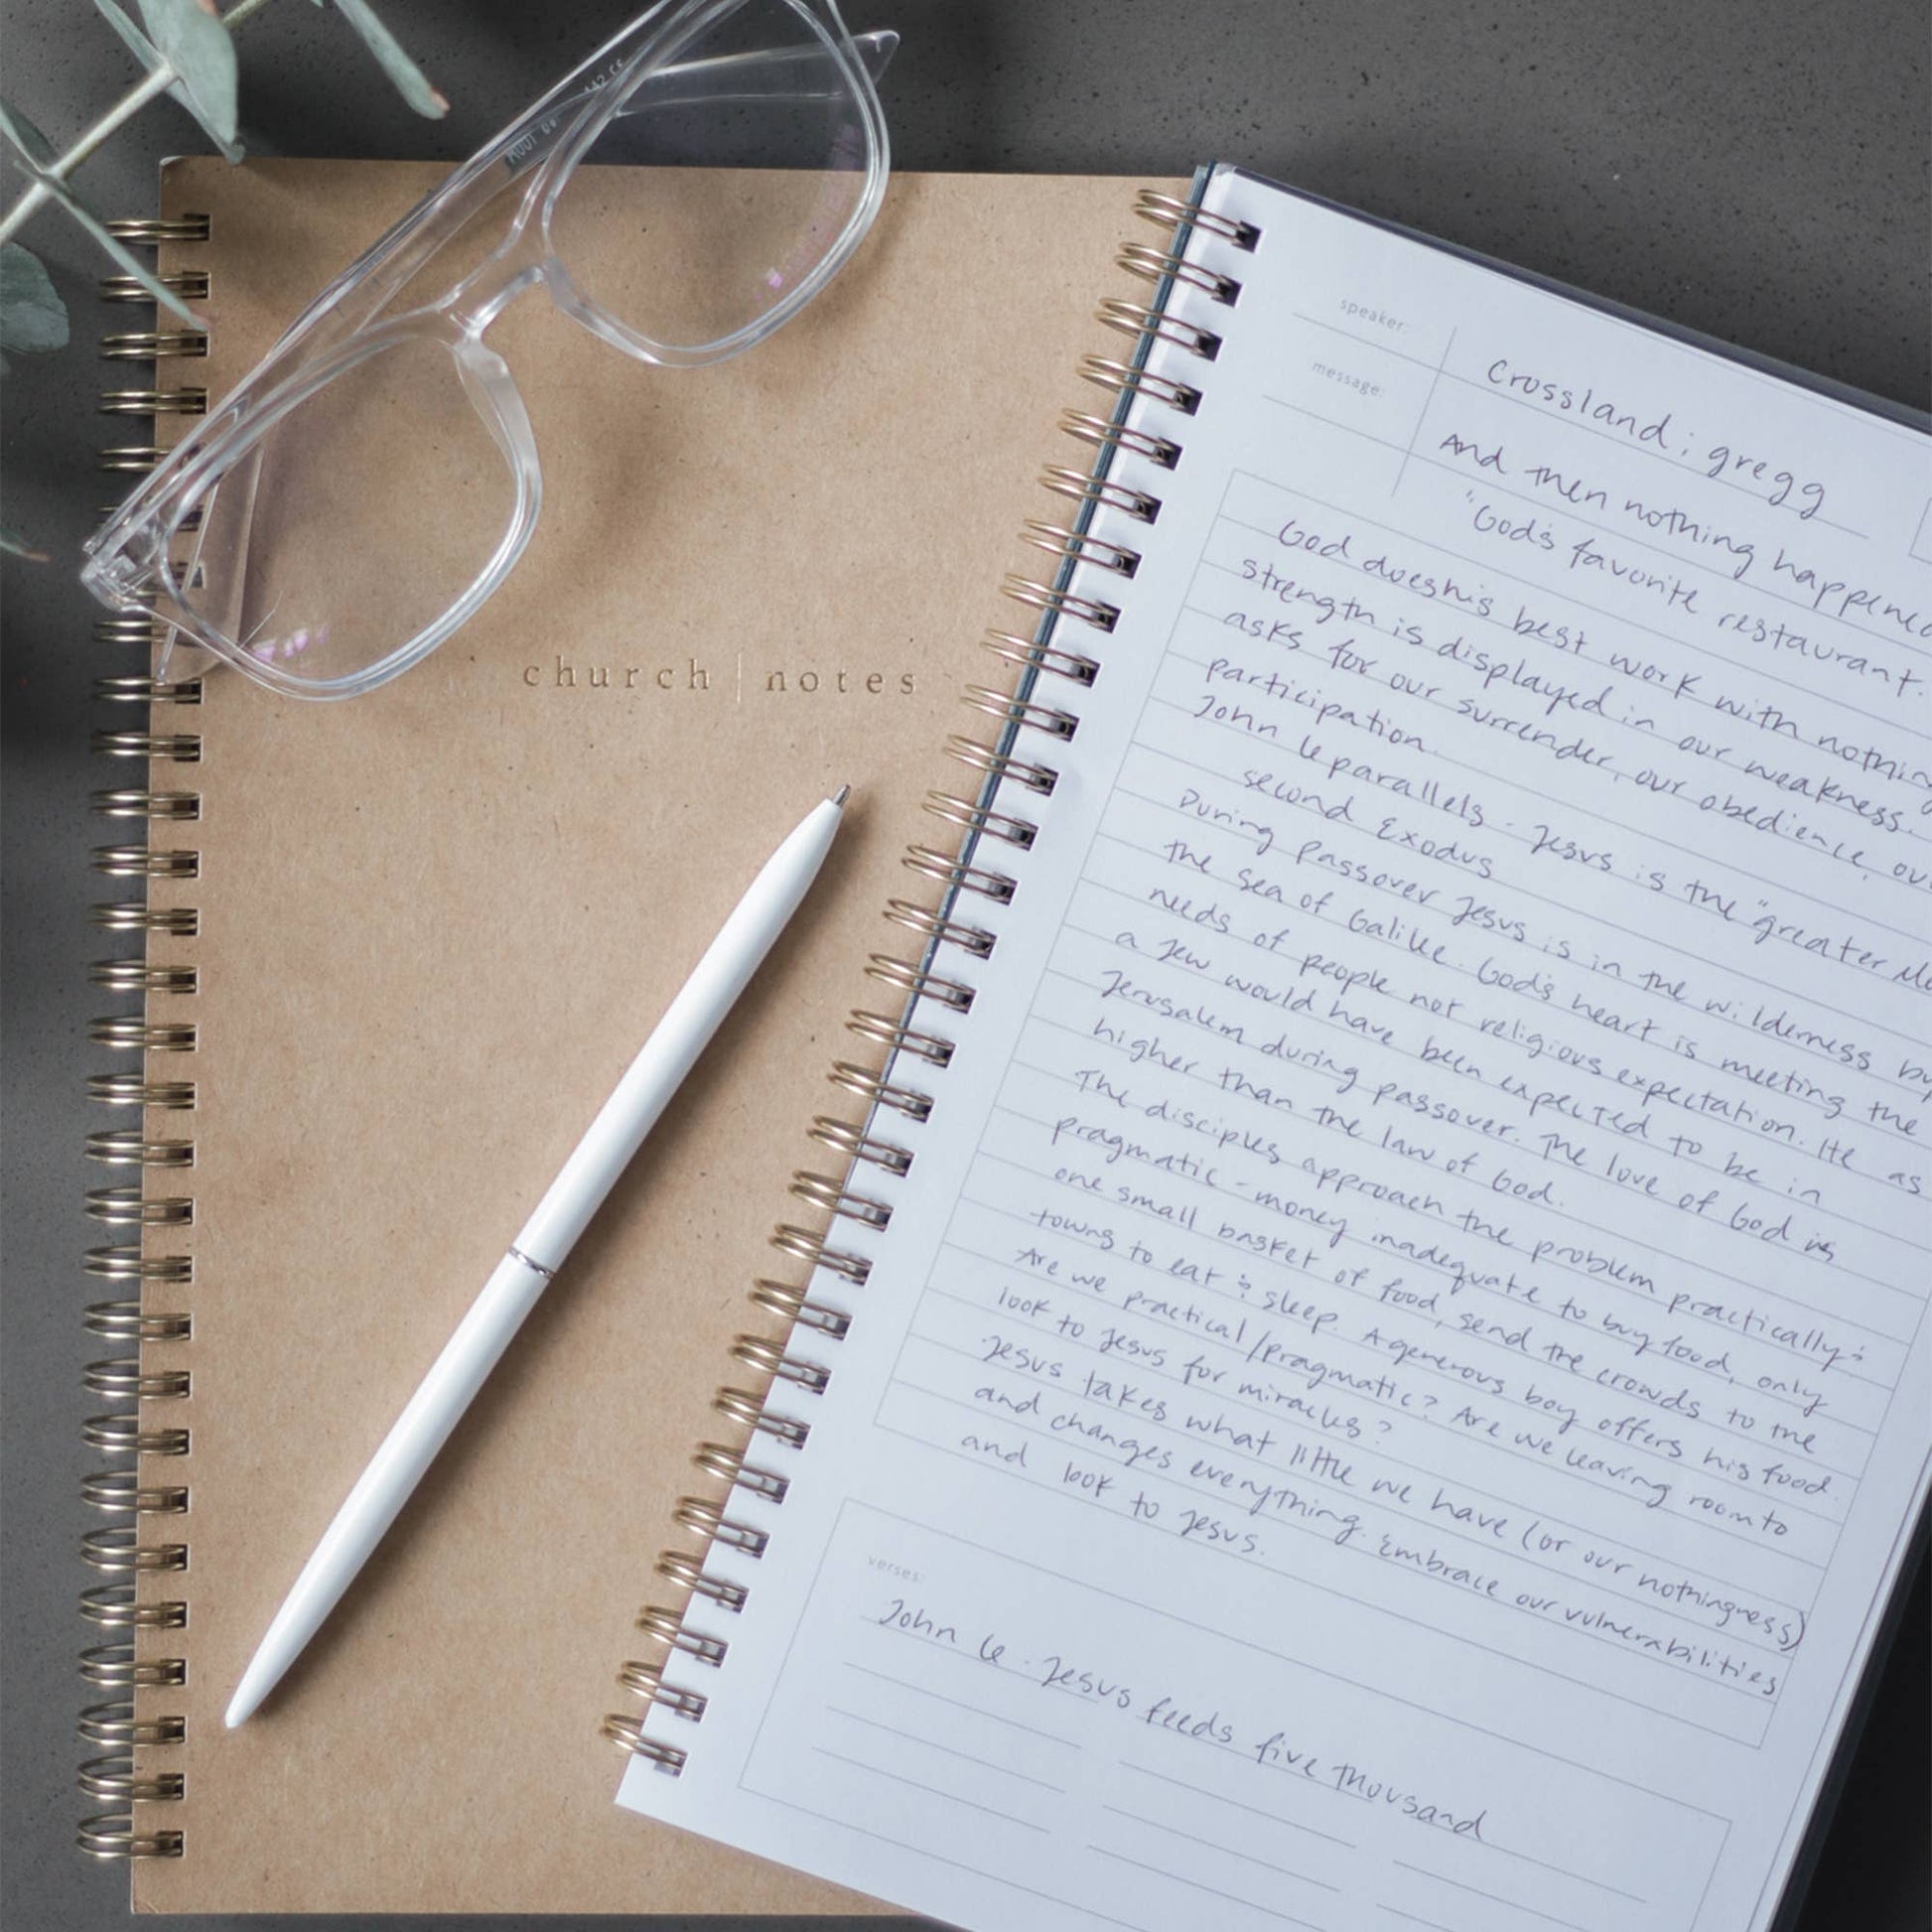 church | notes
speaker:
Crossland; gregg
message:
And then nothing happened
"God's favorite restaurant.
God does his best work with
strength is displayed in our weakness.
asks for our surrender, our obedience,
participation.
John 6 parallels - Jesus is the "greater
second Exodus
During Passover Jesus is in the wilderness by
the Sea of Galilee. God's heart is meeting the
needs of people not religious expectation. He as
a Jew would have been expected to be in
Jerusalem during passover. The love of God is
higher than the law of God.
The disciples approach the problem practically:
pragmatic - money inadequate to buy food, only
one small basket of food, send the crowds to the
towns to eat & sleep. A generous boy offers his food.
Are we practical/pragmatic? Are we leaving room to
look to Jesus for miracles?
Jesus takes what little we have (or our nothingness)
and changes everything. Embrace our vulnerabilities
and look to Jesus.
verses:
John 6 - Jesus feeds five thousand